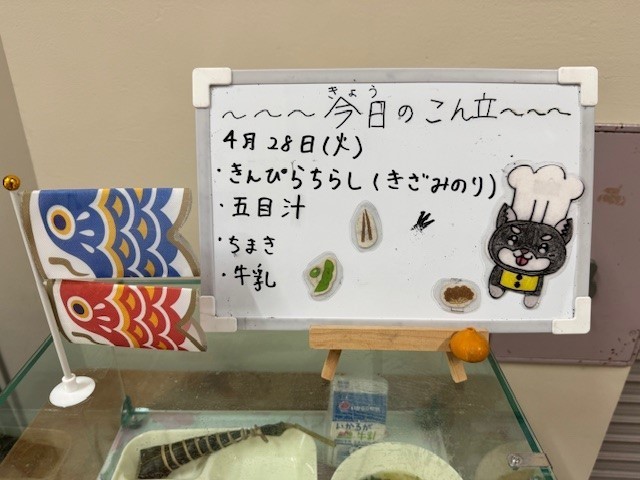 きょう
～～～今日のこん立～～～
4月28日(火)
・きんぴらちらし(きざみのり)
・五目汁
・ちまき
・牛乳
いかるが